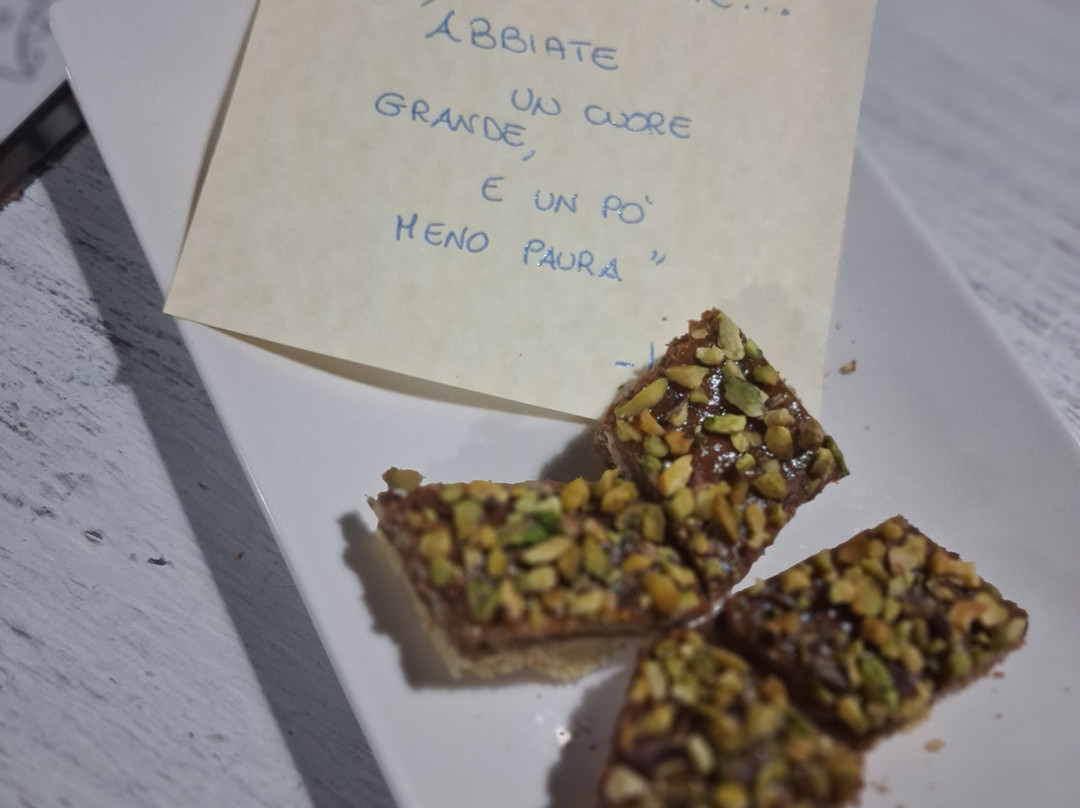 ABBIATE
UN CUORE
GRANDE,
E UN PO'
MENO PAURA"